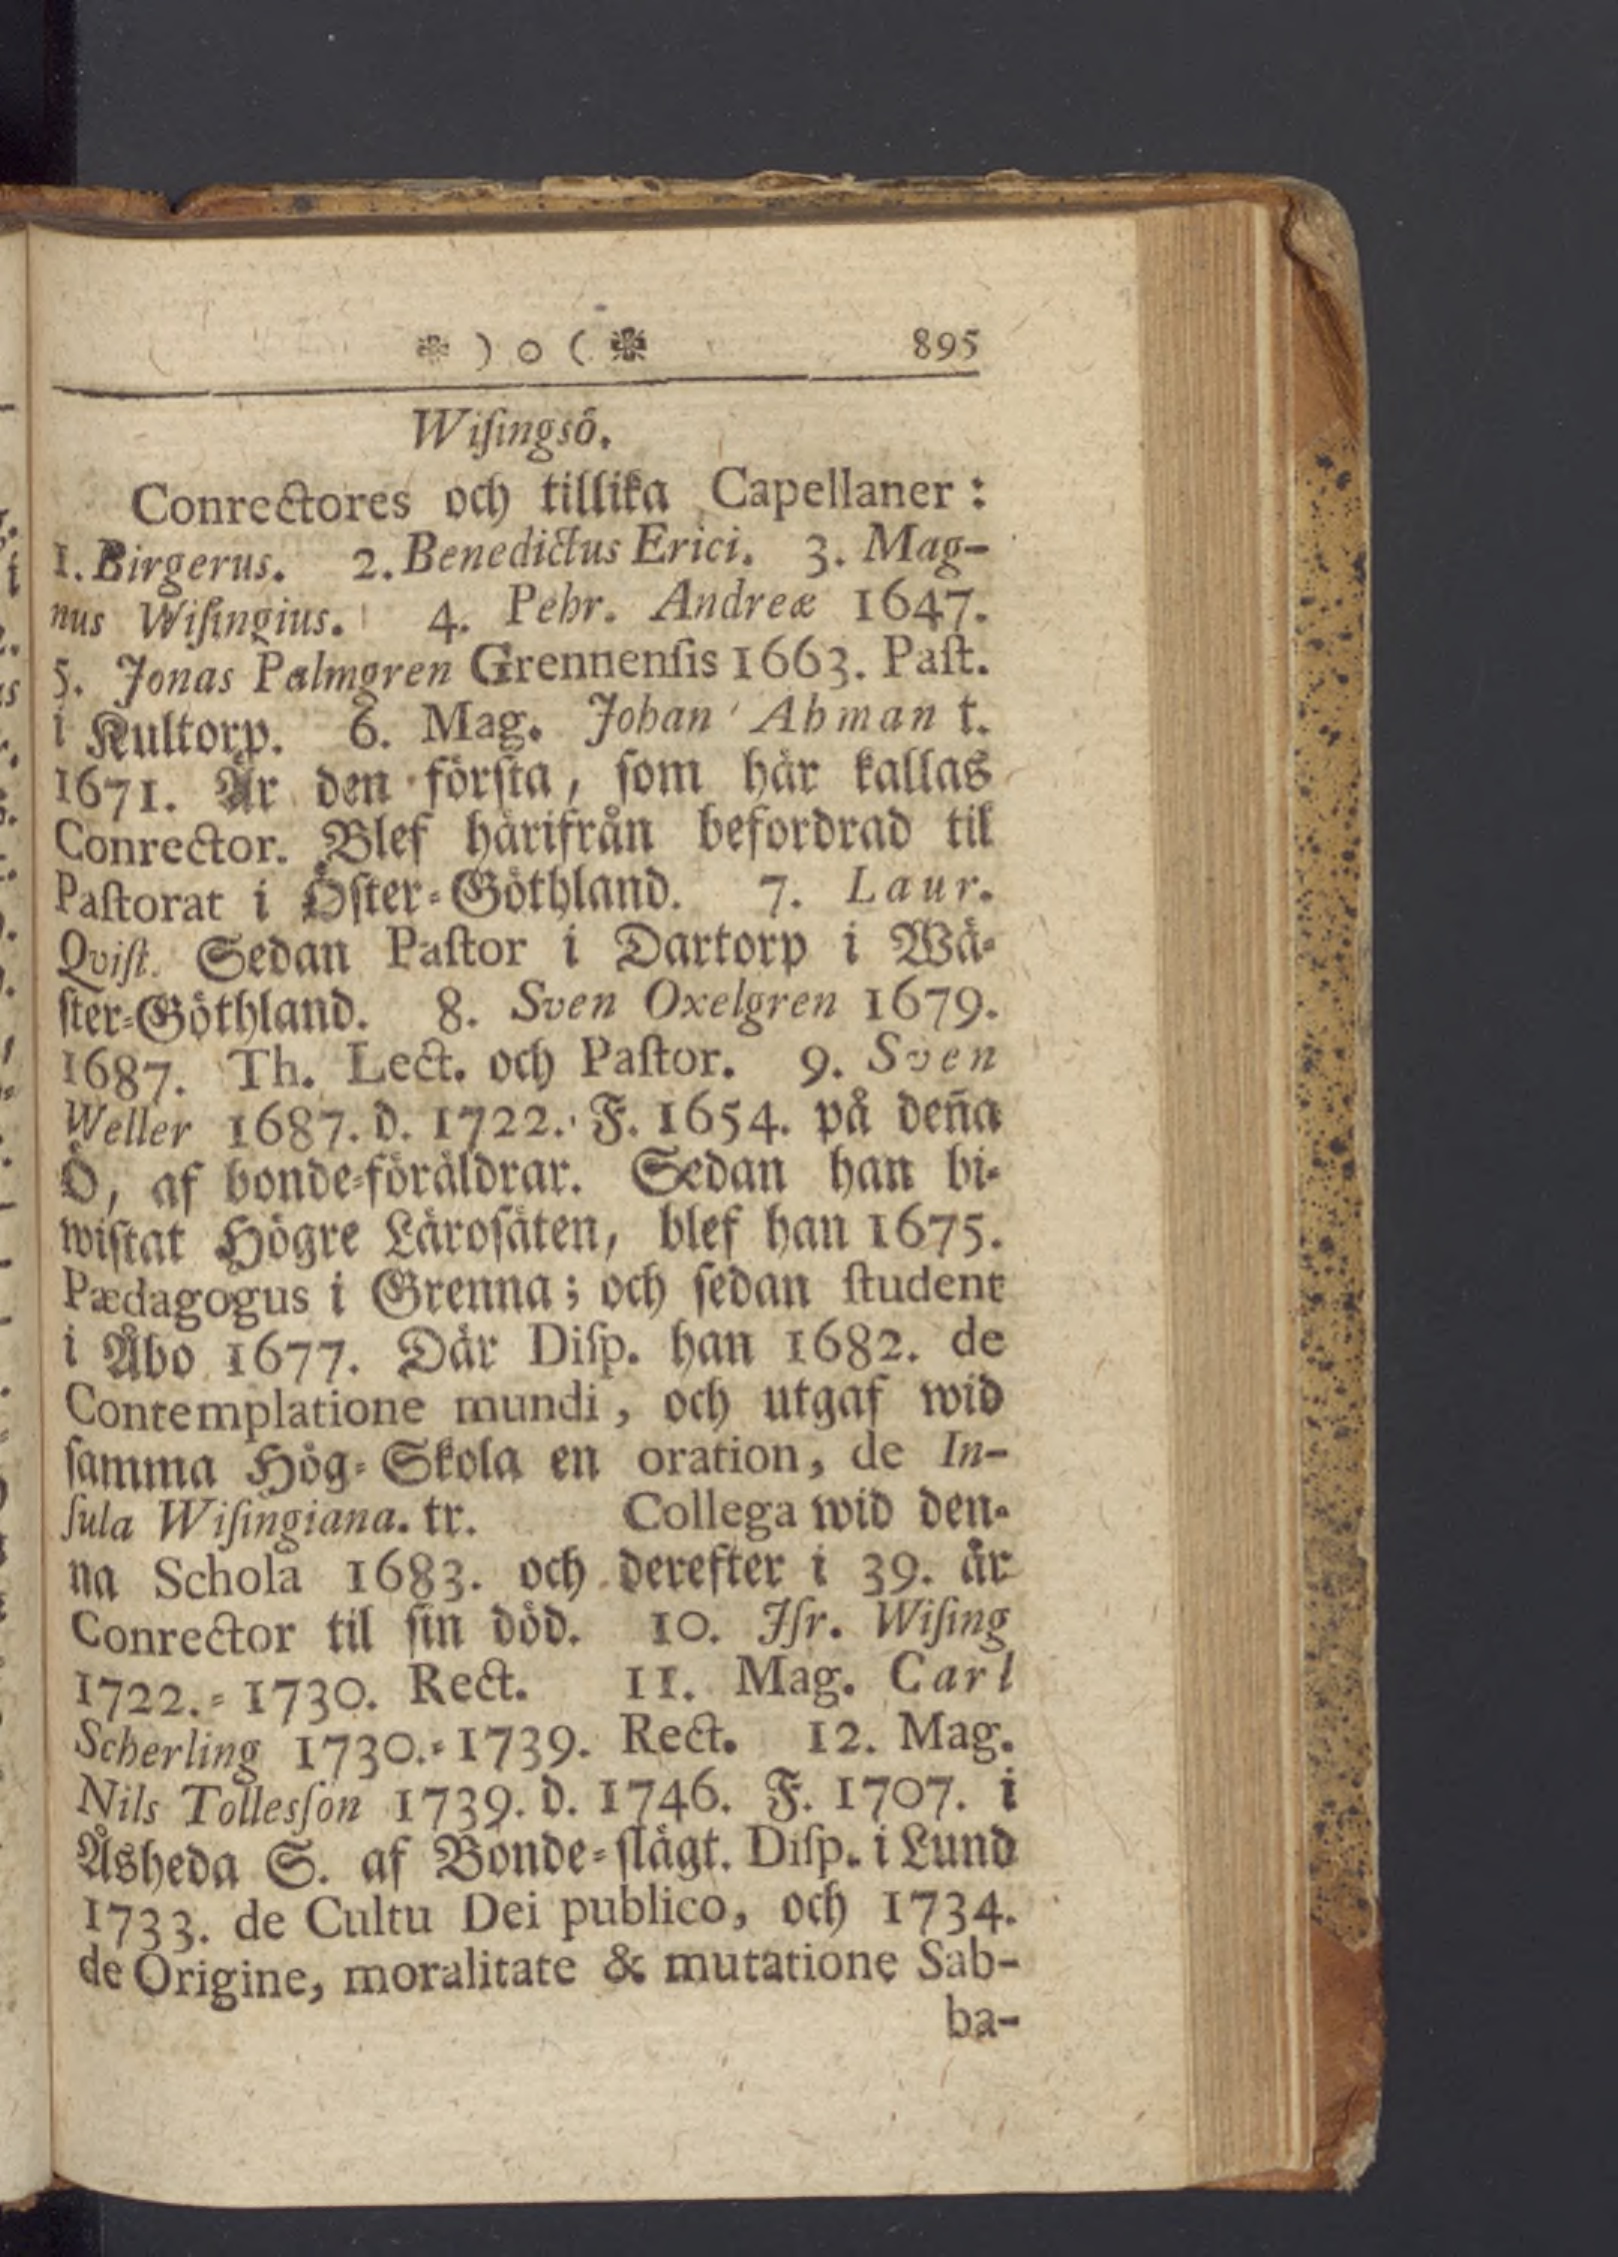 ❉ ) o ( ❉ 895
Wiſingsö.
Conrectores och tillika Capellaner:
1. Birgerus. 2. Benedictus Erici. 3. Mag-
nus Wiſingius. 4. Pehr. Andreæ 1647.
5. Jonas Palmgren Grennenſis 1663. Paſt.
i Kultorp. 6. Mag. Johan Ahman t.
1671. Är den förſta, ſom här kallas
Conrector. Blef härifrån befordrad til
Paſtorat i Öſter-Göthland. 7. Laur.
Qviſt. Sedan Paſtor i Dartorp i Wä-
ſter-Göthland. 8. Sven Oxelgren 1679.
1687. Th. Lect. och Paſtor. 9. Sven
Weller 1687. d. 1722. F. 1654. på deña
Ö, af bonde-föräldrar. Sedan han bi-
wiſtat Högre Läroſäten, blef han 1675.
Pædagogus i Grenna; och ſedan ſtudent
i Åbo 1677. Där Diſp. han 1682. de
Contemplatione mundi, och utgaf wid
ſamma Hög-Skola en oration, de In-
ſula Wiſingiana. tr. Collega wid den-
na Schola 1683. och derefter i 39. år
Conrector til ſin död. 10. Jſr. Wiſing
1722.-1730. Rect. 11. Mag. Carl
Scherling 1730.-1739. Rect. 12. Mag.
Nils Tollesſon 1739. d. 1746. F. 1707. i
Åsheda S. af Bonde-ſlägt. Diſp. i Lund
1733. de Cultu Dei publico, och 1734.
de Origine, moralitate & mutatione Sab-
ba-